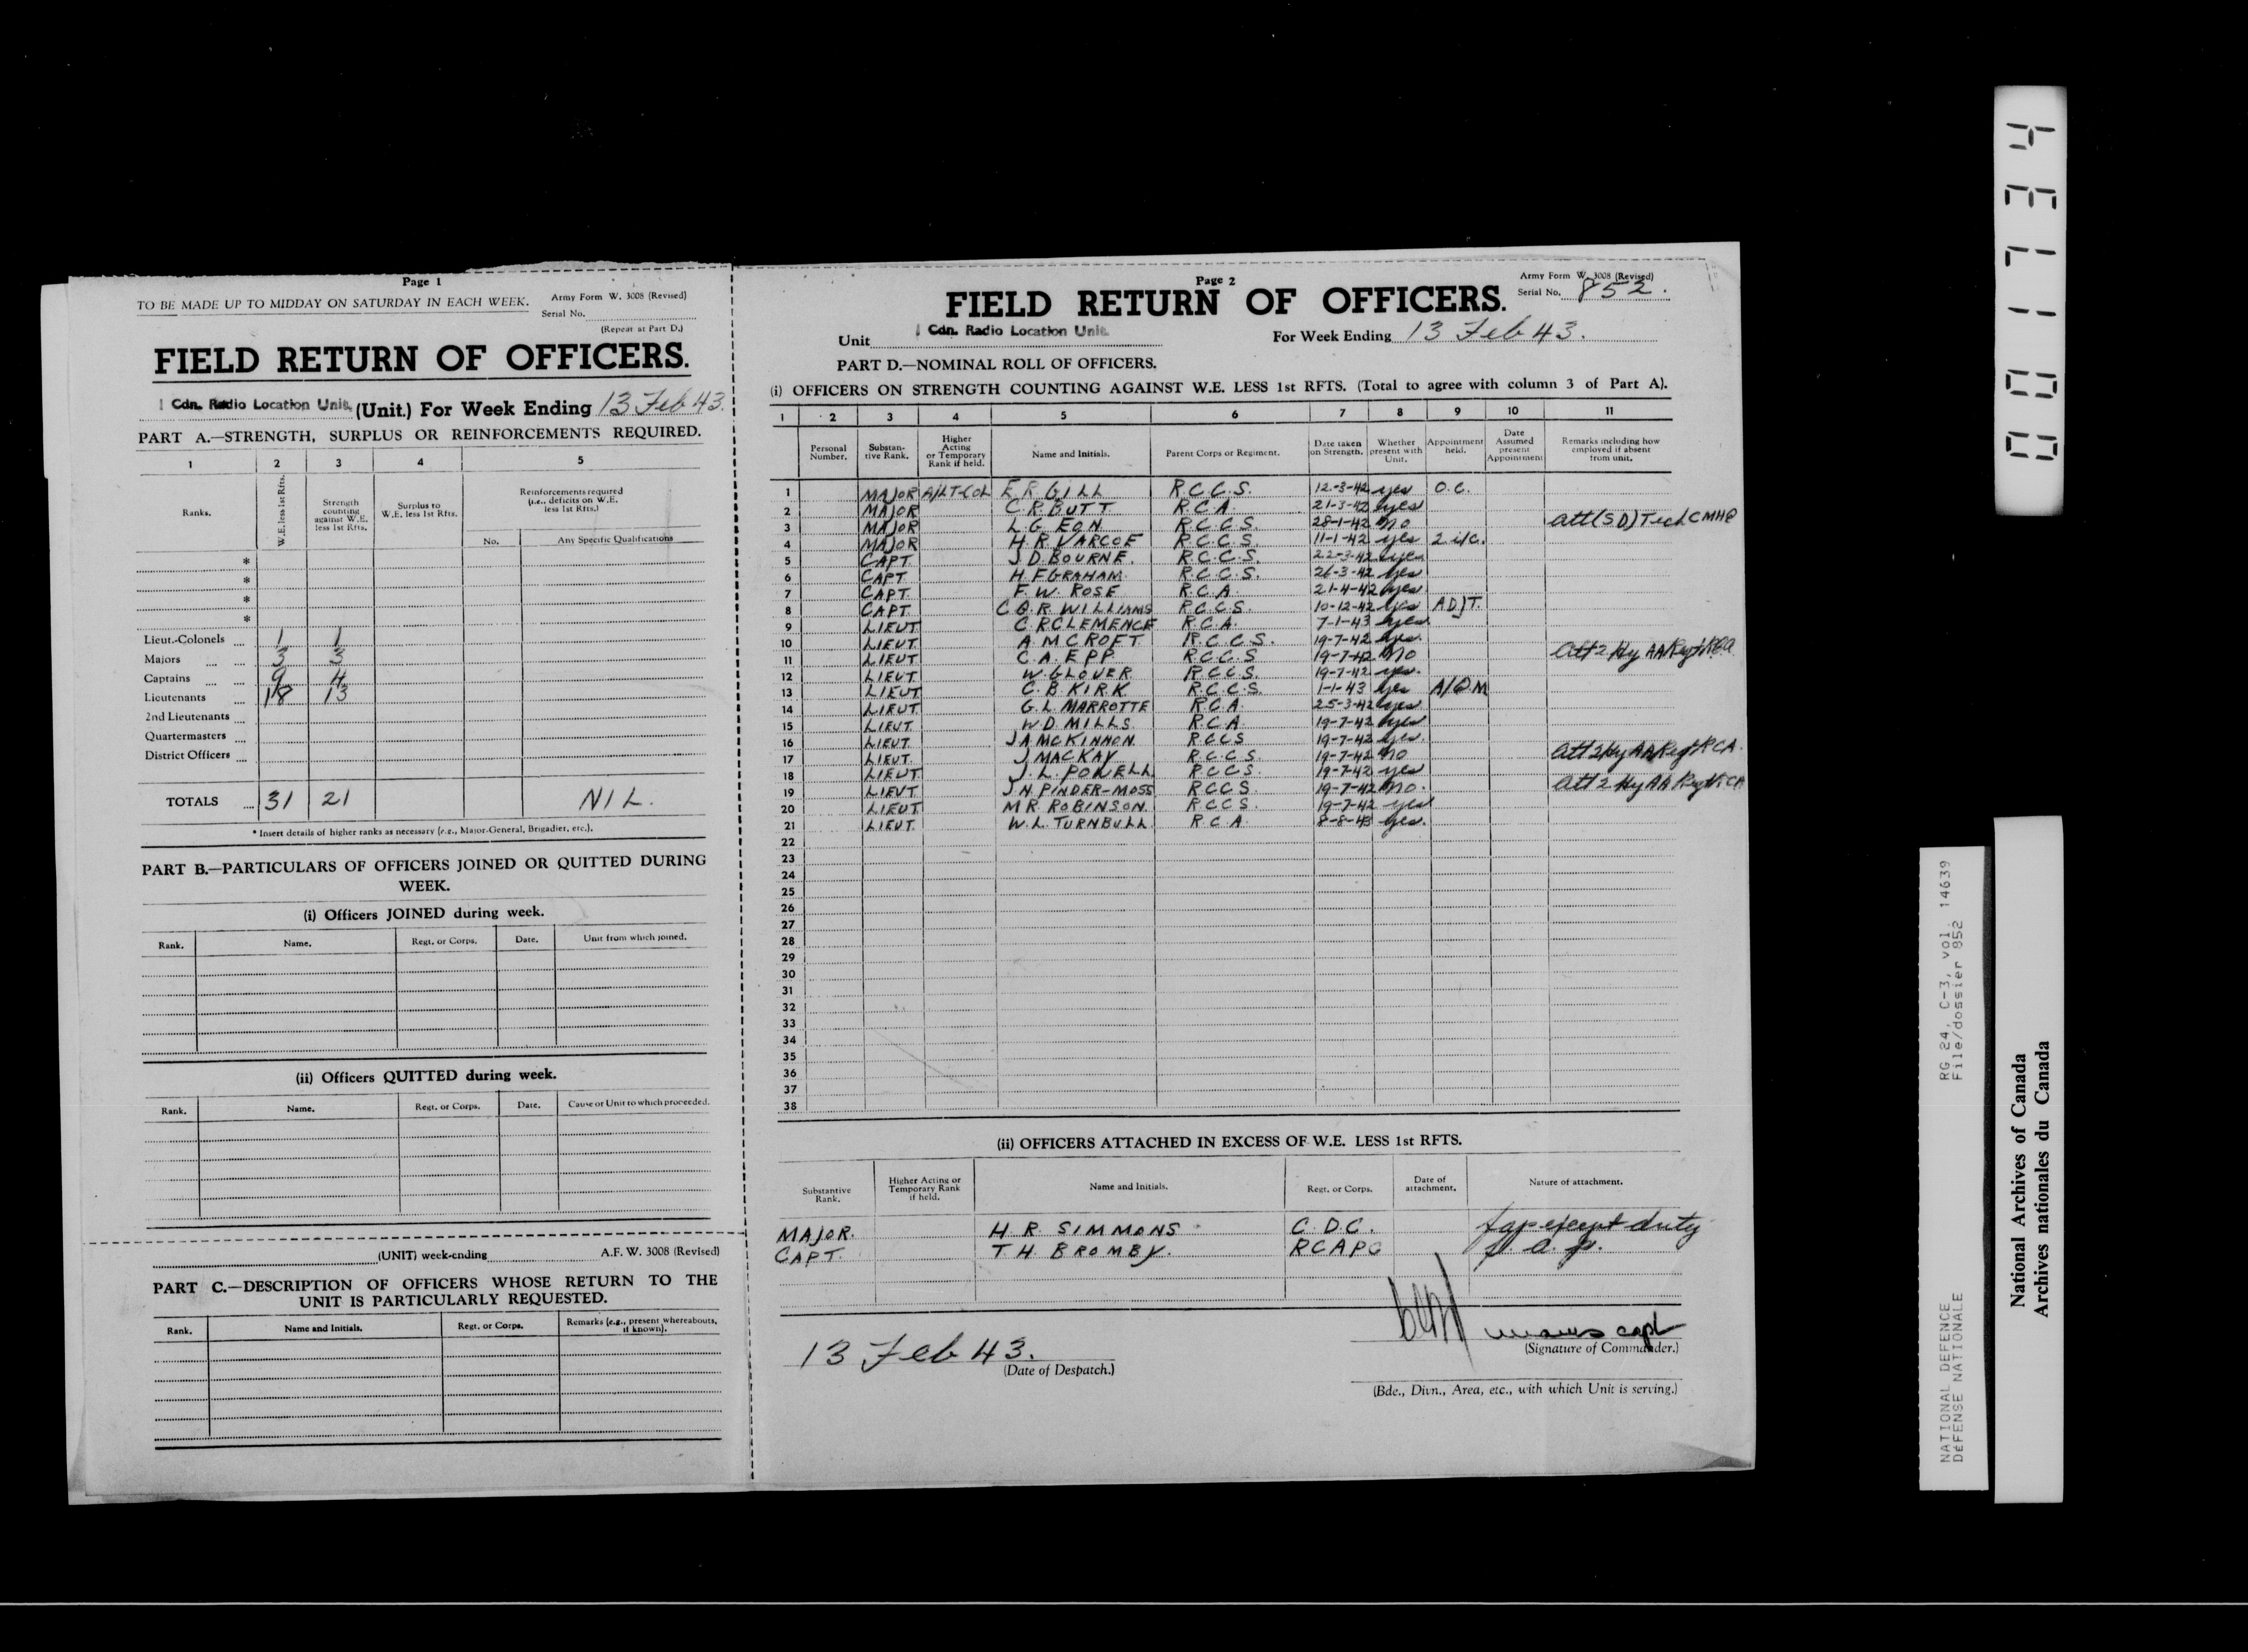 Page 1
TO BE MADE UP TO MIDDAY ON SATURDAY IN EACH WEEK.
Army Form W. 3008 (Revised)
Serial No.
(Repeat at Part D.)
FIELD RETURN OF OFFICERS.
1 Cdn. Radio Location Unit. (Unit.) For Week Ending 13 Feb 43.
PART A.—STRENGTH, SURPLUS OR REINFORCEMENTS REQUIRED.
1 2 3 4 5
Ranks. W.E. less 1st Rfts. Strength counting against W.E. less 1st Rfts. Surplus to W.E. less 1st Rfts. Reinforcements required (i.e., deficits on W.E. less 1st Rfts.)
No. Any Specific Qualifications
*
*
*
*
Lieut.-Colonels 1 1
Majors 3 3
Captains 9 4
Lieutenants 18 13
2nd Lieutenants
Quartermasters
District Officers
TOTALS 31 21 NIL.
* Insert details of higher ranks as necessary (e.g., Major-General, Brigadier, etc.).
PART B.—PARTICULARS OF OFFICERS JOINED OR QUITTED DURING
WEEK.
(i) Officers JOINED during week.
Rank. Name. Regt. or Corps. Date. Unit from which joined.
(ii) Officers QUITTED during week.
Rank. Name. Regt. or Corps. Date. Cause or Unit to which proceeded.
(UNIT) week-ending A.F. W. 3008 (Revised)
PART C.—DESCRIPTION OF OFFICERS WHOSE RETURN TO THE
UNIT IS PARTICULARLY REQUESTED.
Rank. Name and Initials. Regt. or Corps. Remarks (e.g., present whereabouts, if known).
Page 2
Army Form W. 3008 (Revised)
Serial No. 852.
FIELD RETURN OF OFFICERS.
Unit 1 Cdn. Radio Location Unit. For Week Ending 13 Feb 43.
PART D.—NOMINAL ROLL OF OFFICERS.
(i) OFFICERS ON STRENGTH COUNTING AGAINST W.E. LESS 1st RFTS. (Total to agree with column 3 of Part A).
1 2 3 4 5 6 7 8 9 10 11
Personal Number. Substantive Rank. Higher Acting or Temporary Rank if held. Name and Initials. Parent Corps or Regiment. Date taken on Strength. Whether present with Unit. Appointment held. Date Assumed present Appointment Remarks including how employed if absent from unit.
1 MAJOR A/LT-COL E R GILL R.C.C.S. 12-3-42 yes O.C.
2 MAJOR C.R. BUTT R.C.A. 21-3-42 yes
3 MAJOR L.G. EON R.C.C.S. 28-1-42 no att (SD) Tech CMHQ
4 MAJOR H.R. VARCOE R.C.C.S. 11-1-42 yes 2 i/c.
5 CAPT J D BOURNE. R.C.C.S. 22-3-42 yes
6 CAPT H F GRAHAM R.C.C.S. 26-3-42 yes
7 CAPT. F.W. ROSE R.C.A. 21-4-42 yes
8 CAPT C Q.R. WILLIAMS R.C.C.S. 10-12-42 yes ADJT.
9 LIEUT C.R CLEMENCE R.C.A. 7-1-43 yes
10 LIEUT A M CROFT R.C.C.S. 19-7-42 yes.
11 LIEUT C.A. EPP R.C.C.S 19-7-42 no att 2 Hy AA Regt RCA
12 LIEUT W. GLOVER R.C.C.S. 19-7-42 yes.
13 LIEUT C.B. KIRK R.C.C.S. 1-1-43 yes A/Q.M
14 LIEUT G.L. MARROTTE R.C.A. 25-3-42 yes
15 LIEUT. W.D. MILLS R.C.A. 19-7-42 yes
16 LIEUT J A MCKINNON R.C.C.S 19-7-42 yes.
17 LIEUT. J MACKAY R.C.C.S. 19-7-42 no att 2 Hy AA Regt RCA.
18 LIEUT J. L. POWELL R.C.C.S. 19-7-42 yes
19 LIEUT J.N. PINDER-MOSS R.C.C.S 19-7-42 no. att 2 Hy AA Regt RCA
20 LIEUT M.R. ROBINSON R.C.C.S. 19-7-42 yes
21 LIEUT. W.L. TURNBULL R.C.A. 8-8-43 yes.
22
23
24
25
26
27
28
29
30
31
32
33
34
35
36
37
38
(ii) OFFICERS ATTACHED IN EXCESS OF W.E. LESS 1st RFTS.
Substantive Rank. Higher Acting or Temporary Rank if held. Name and Initials. Regt. or Corps. Date of attachment. Nature of attachment.
MAJOR. H R. SIMMONS C.D.C. fap except duty
CAPT. T H. BROMBY. RCAPC f. a. p.
capt
13 Feb 43. (Signature of Commander.)
(Date of Despatch.)
(Bde., Divn., Area, etc., with which Unit is serving.)
001734
RG 24, C-3, vol. 14639
File/dossier 852
NATIONAL DEFENCE
DÉFENSE NATIONALE
National Archives of Canada
Archives nationales du Canada